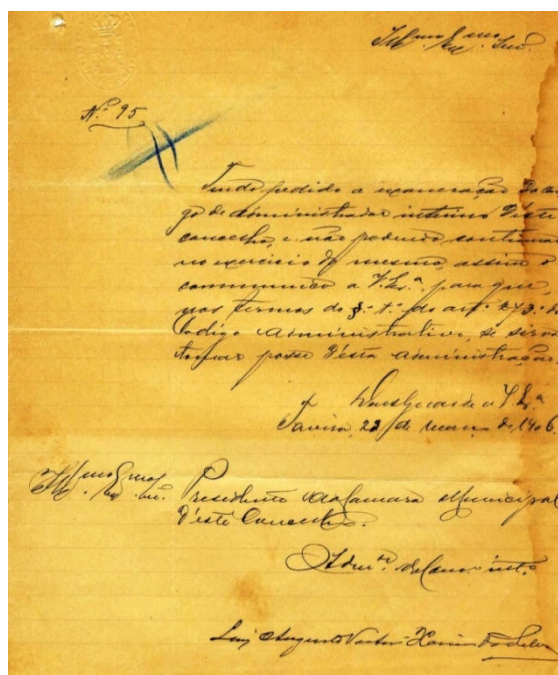 Ill.mo Ex.mo Snr.
N.º 95
Tendo pedido a exoneração do car
go de administrador interino d'este
concelho, e não podendo continuar
no exercicio do mesmo, assim o
communico a V. Ex.ª para que,
nos termos do §.º 1.º do art.º 273.º do
Codigo Administrativo, se sirva
tomar posse d'esta administração.
Deus Guarde a V. Ex.ª
Tavira, 22 de março de 1906.
Ill.mo Ex.mo Snr. Presidente da Camara Municipal
d'este Concelho.
O Adm.or do Conc.º int.º
Luiz Augusto Victor Xavier da Silva